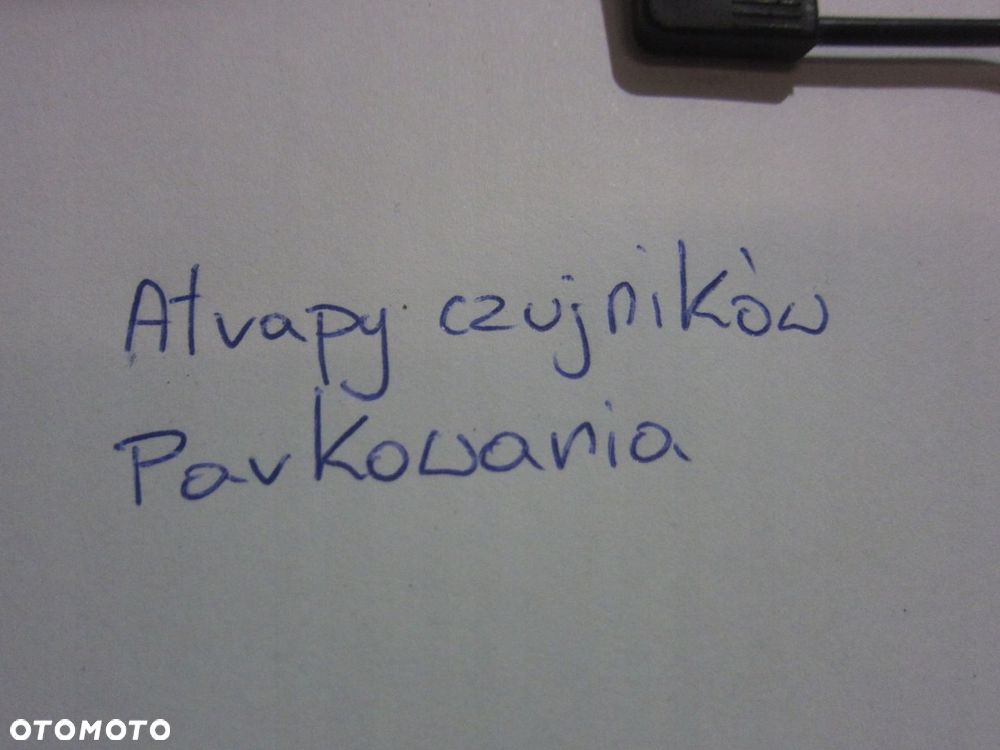 Atrapy czujników
Parkowania
OTOMOTO